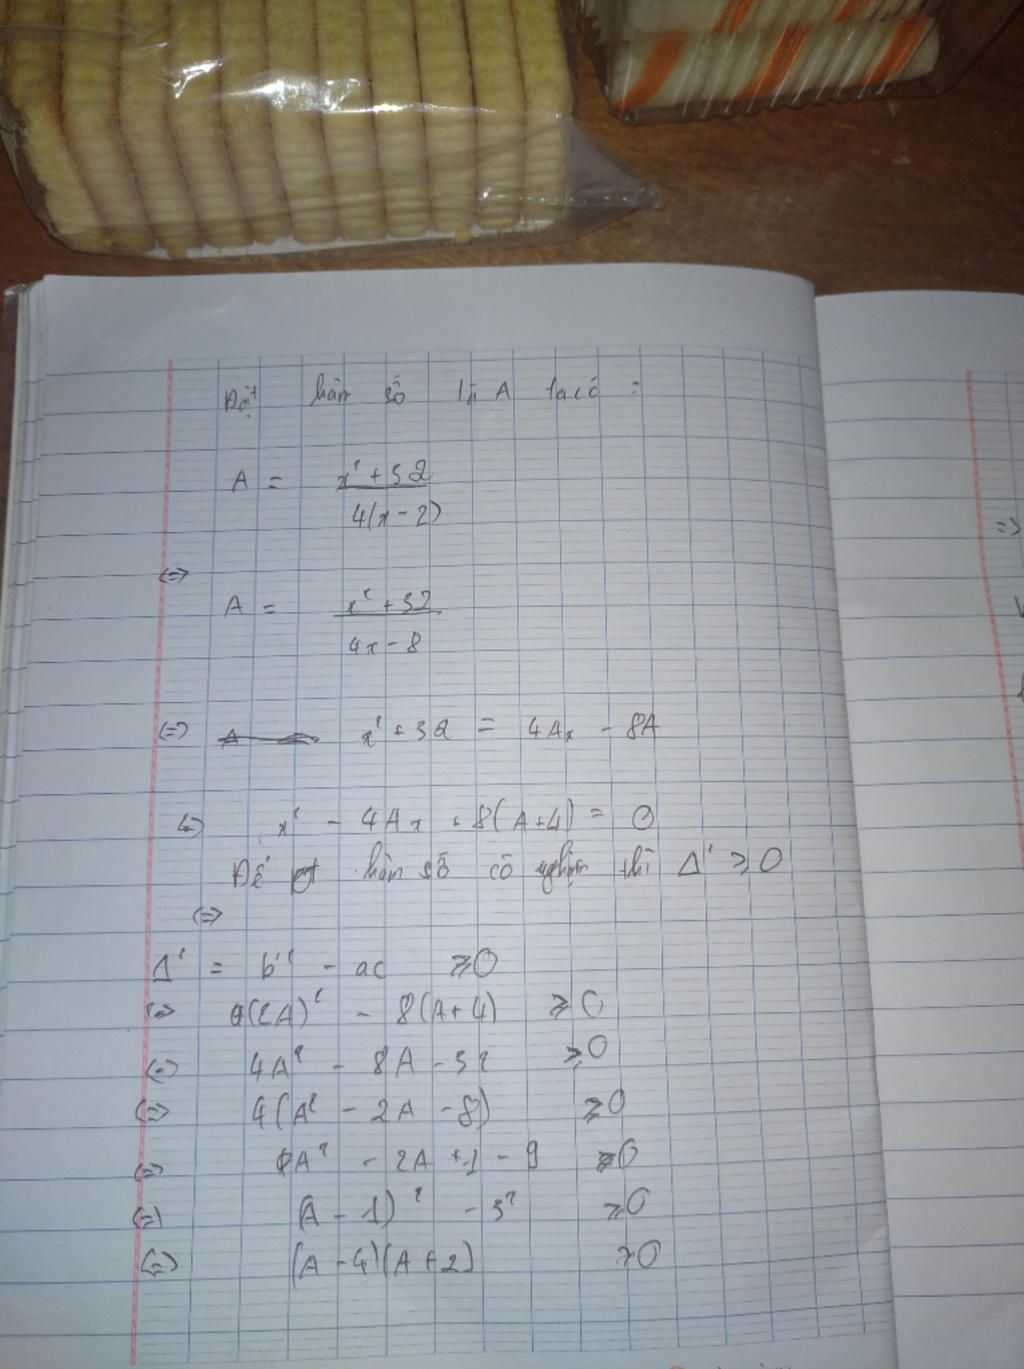 Đặt hàm số là A ta có :
A = \frac{x² + 32}{4(x - 2)}
<=>
A = \frac{x² + 32}{4x - 8}
<=> x² + 32 = 4Ax - 8A
<=> x² - 4Ax + 8(A+4) = 0
Để hàm số có nghiệm thì Δ' ⩾ 0
<=>
Δ' = b'² - ac ⩾ 0
<=> (2A)² - 8(A+4) ⩾ 0
<=> 4A² - 8A - 32 ⩾ 0
<=> 4(A² - 2A - 8) ⩾ 0
<=> A² - 2A + 1 - 9 ⩾ 0
<=> (A - 1)² - 3² ⩾ 0
<=> (A - 4)(A + 2) ⩾ 0
=>